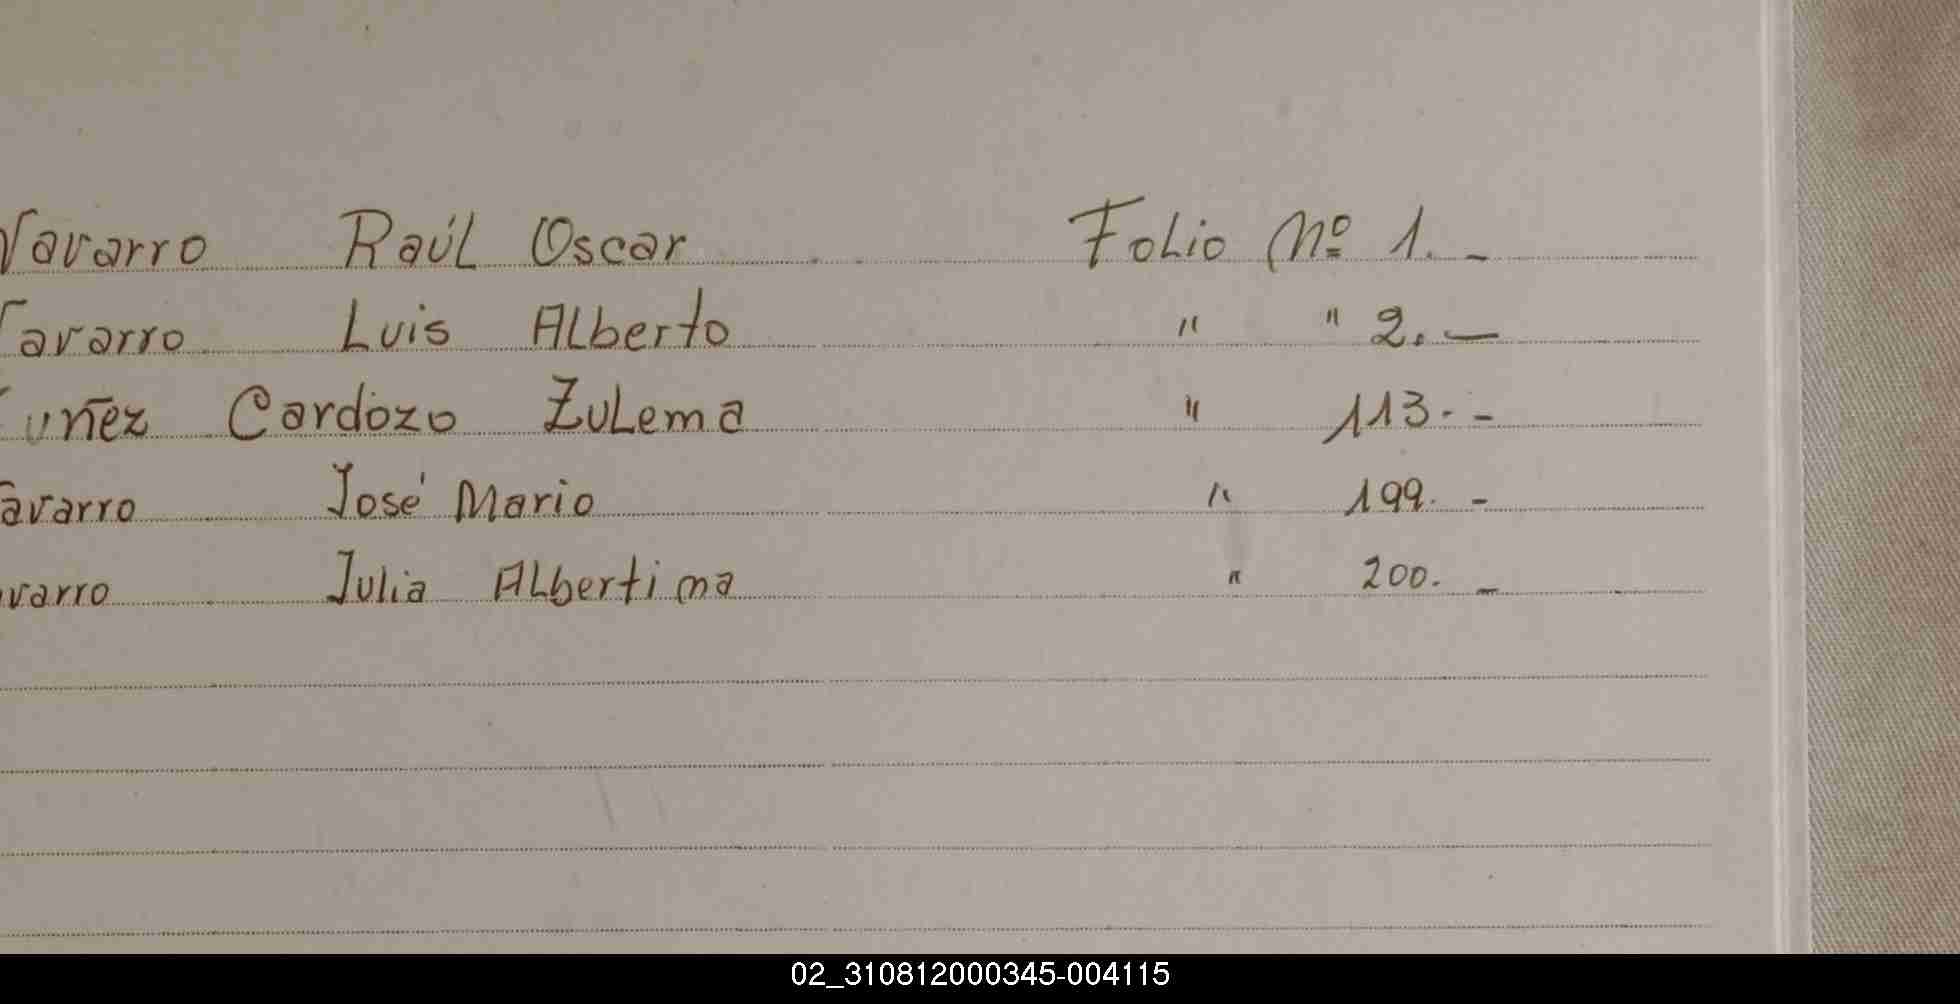 Navarro Raúl Oscar Folio Nº 1. -
Navarro Luis Alberto " " 2. -
Nuñez Cardozo Zulema " 113. -
avarro José Mario " 199. -
varro Julia Albertina " 200. -
02_310812000345-004115